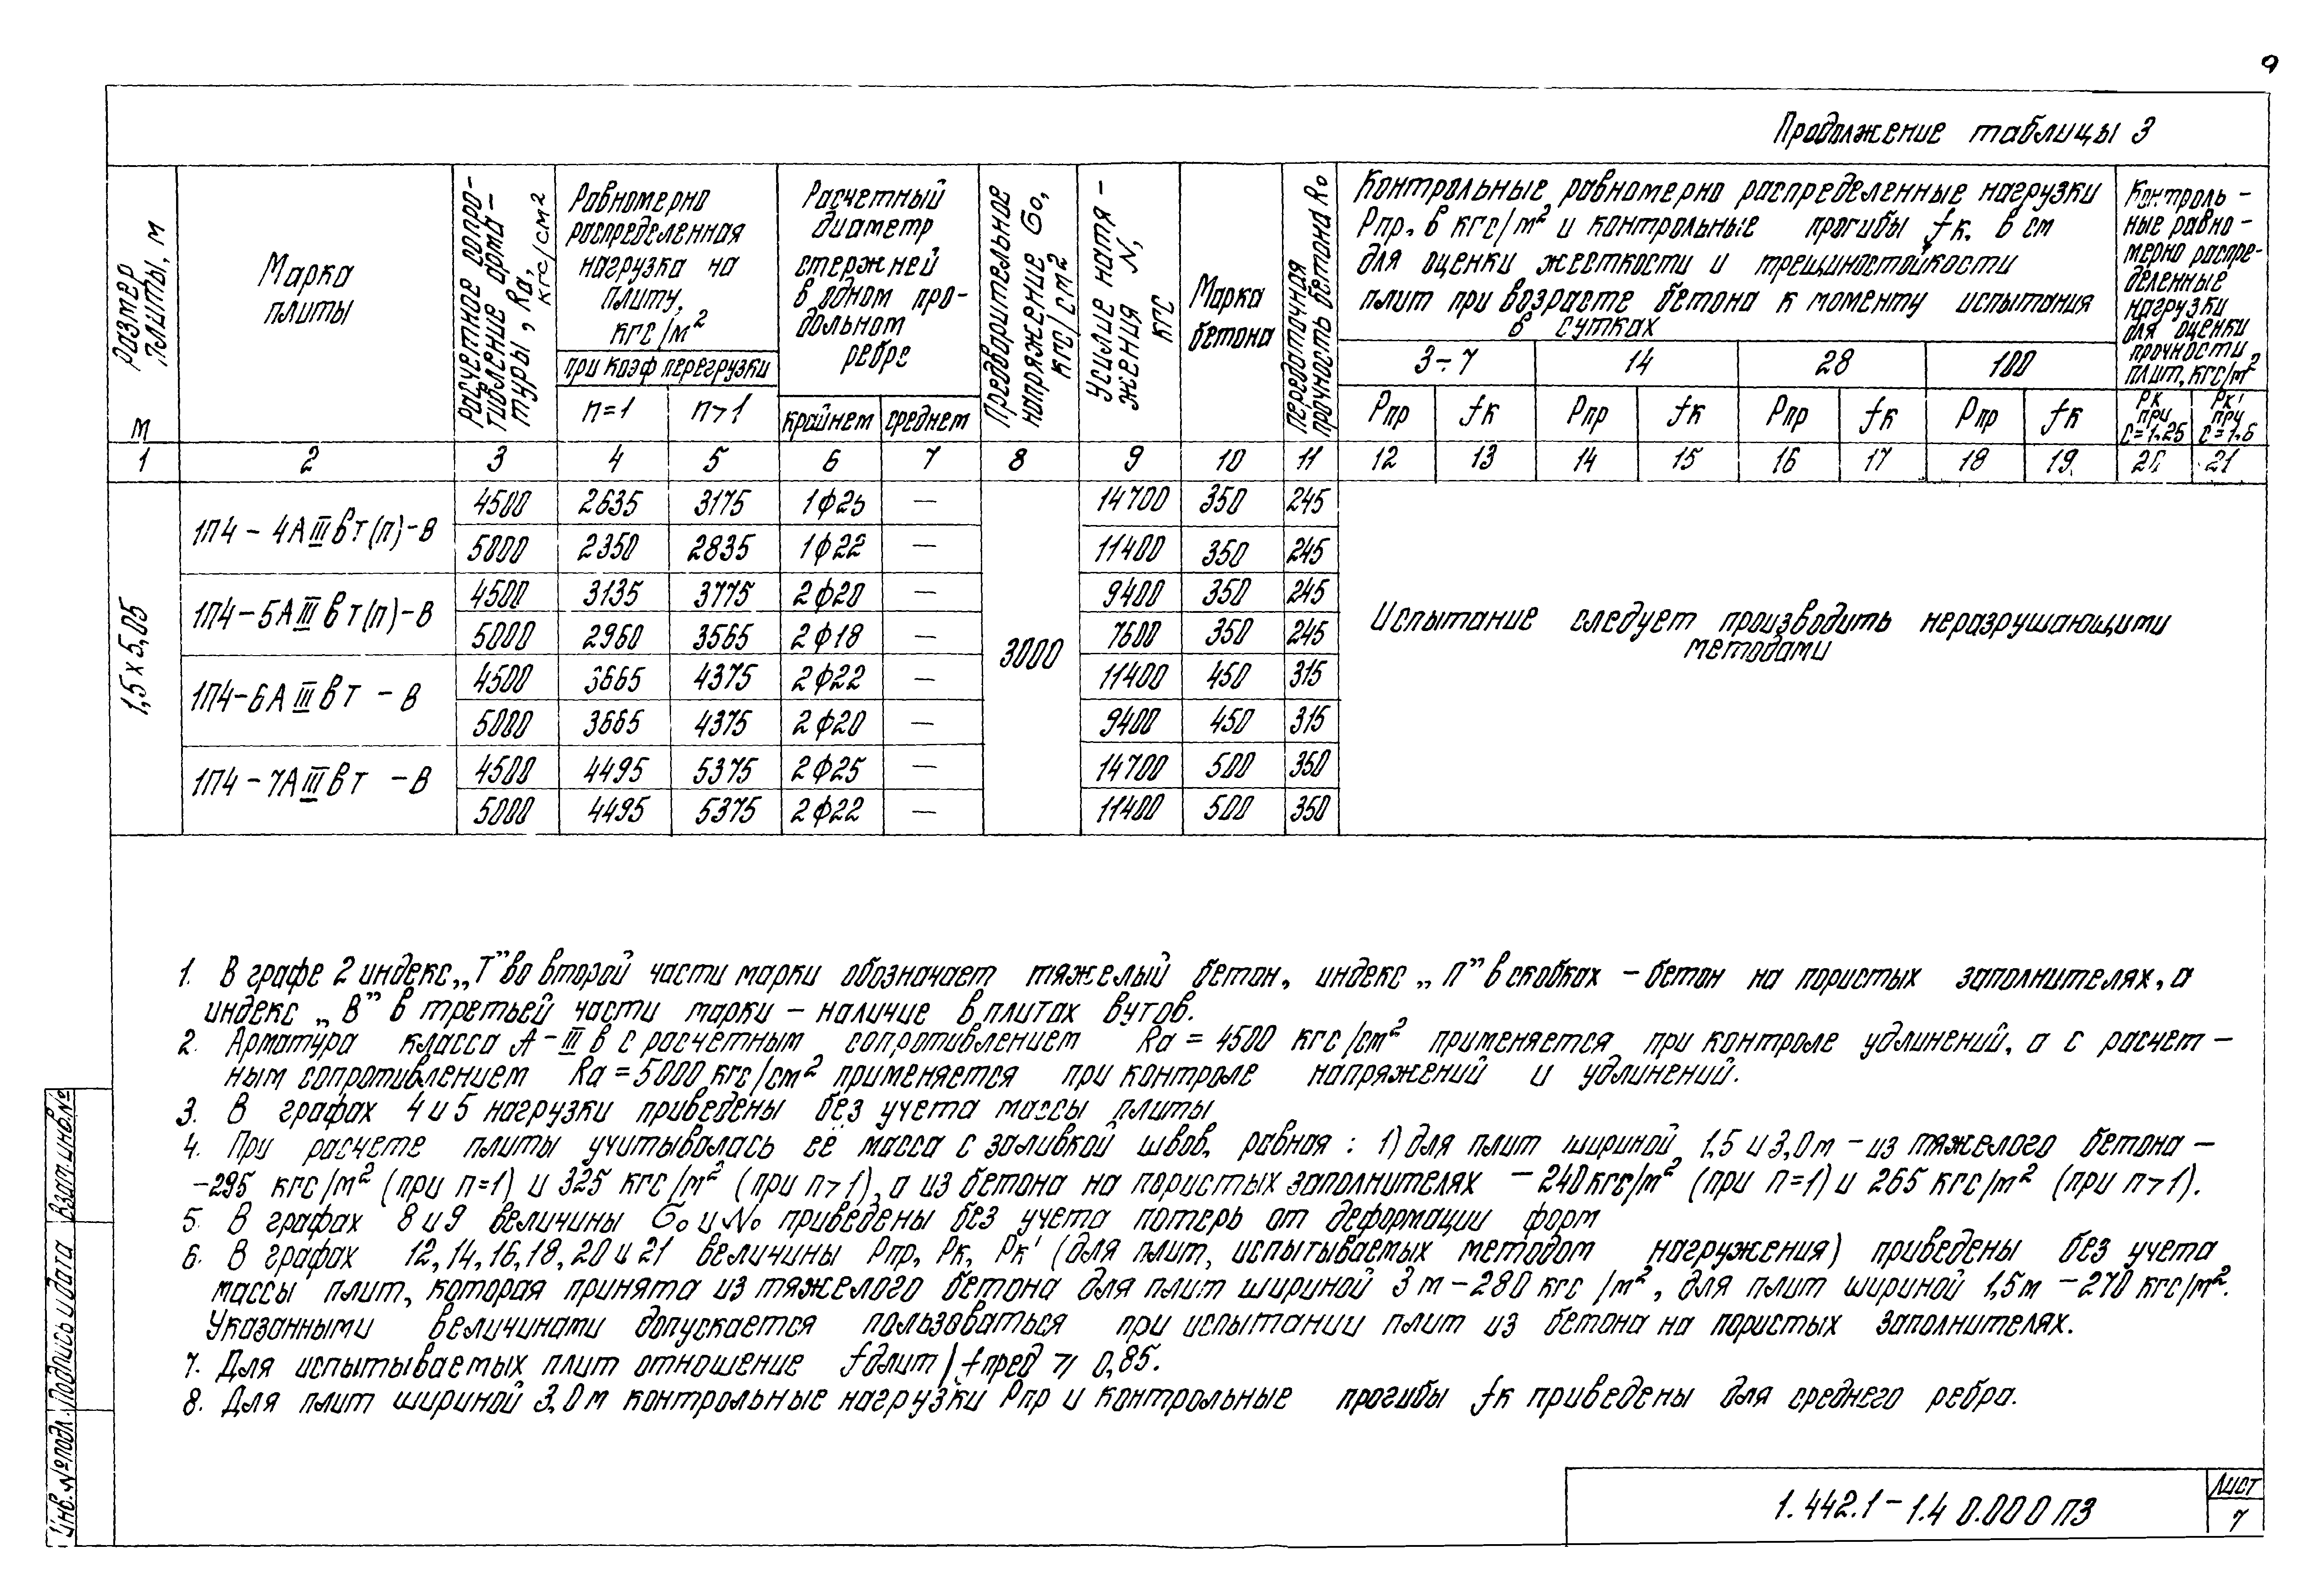 9
Продолжение таблицы 3
Размер плиты, м
м
Марка
плиты
Расчетное сопро-
тивление арма-
туры, Rа,
кгс/см2
Равномерно
распределенная
нагрузка на
плиту,
кгс/м2
при коэф перегрузки
n=1 n>1
Расчетный
диаметр
стержней
в одном про-
дольном
ребре
крайнем среднем
Предварительное
напряжение σо,
кгс/см2
Усилие натя-
жения N,
кгс
Марка
бетона
Передаточная
прочность бетона Rо
Контрольные равномерно распределенные нагрузки
Рпр. в кгс/м2 и контрольные прогибы fк. в см
для оценки жесткости и трещиностойкости
плит при возрасте бетона к моменту испытания
в сутках
3÷7 14 28 100
Рпр fк Рпр fк Рпр fк Рпр fк
Контроль-
ные равно-
мерно распре-
деленные
нагрузки
для оценки
прочности
плит, кгс/м2
Рк при с=1.25
Рк' при с=1.6
1 2 3 4 5 6 7 8 9 10 11 12 13 14 15 16 17 18 19 20 21
1,5х5,05
3000
1П4-4АIIIвт(п)-в
4500 2635 3175 1ф25 — 14700 350 245
5000 2350 2835 1ф22 — 11400 350 245
1П4-5АIIIвт(п)-в
4500 3135 3775 2ф20 — 9400 350 245
5000 2960 3565 2ф18 — 7600 350 245
1П4-6АIIIвт -в
4500 3665 4375 2ф22 — 11400 450 315
5000 3665 4375 2ф20 — 9400 450 315
1П4-7АIIIвт -в
4500 4495 5375 2ф25 — 14700 500 350
5000 4495 5375 2ф22 — 11400 500 350
Испытание следует производить неразрушающими
методами
1. В графе 2 индекс „Т" во второй части марки обозначает тяжелый бетон, индекс „п" в скобках - бетон на пористых заполнителях, а
индекс „В" в третьей части марки - наличие в плитах вутов.
2. Арматура класса А-III в с расчетным сопротивлением Rа = 4500 кгс/см2 применяется при контроле удлинений, а с расчет-
ным сопротивлением Rа = 5000 кгс/см2 применяется при контроле напряжений и удлинений.
3. В графах 4 и 5 нагрузки приведены без учета массы плиты
4. При расчете плиты учитывалась её масса с заливкой швов, равная: 1) для плит шириной 1,5 и 3,0м - из тяжелого бетона -
-295 кгс/м2 (при n=1) и 325 кгс/м2 (при n>1), а из бетона на пористых заполнителях - 240кгс/м2 (при n=1) и 265 кгс/м2 (при n>1).
5. В графах 8 и 9 величины σо и Nо приведены без учета потерь от деформации форм
6. В графах 12, 14, 16, 18, 20 и 21 величины Рпр, Рк, Рк' (для плит, испытываемых методом нагружения) приведены без учета
массы плит, которая принята из тяжелого бетона для плит шириной 3 м - 280 кгс/м2, для плит шириной 1,5м - 270 кгс/м2.
Указанными величинами допускается пользоваться при испытании плит из бетона на пористых заполнителях.
7. Для испытываемых плит отношение fдлит/fпред ⩾ 0,85.
8. Для плит шириной 3,0м контрольные нагрузки Рпр и контрольные прогибы fк приведены для среднего ребра.
Инв.№подл. Подпись и дата Взам.инв.№
1.442.1-1.4 0.000 ПЗ
Лист
7